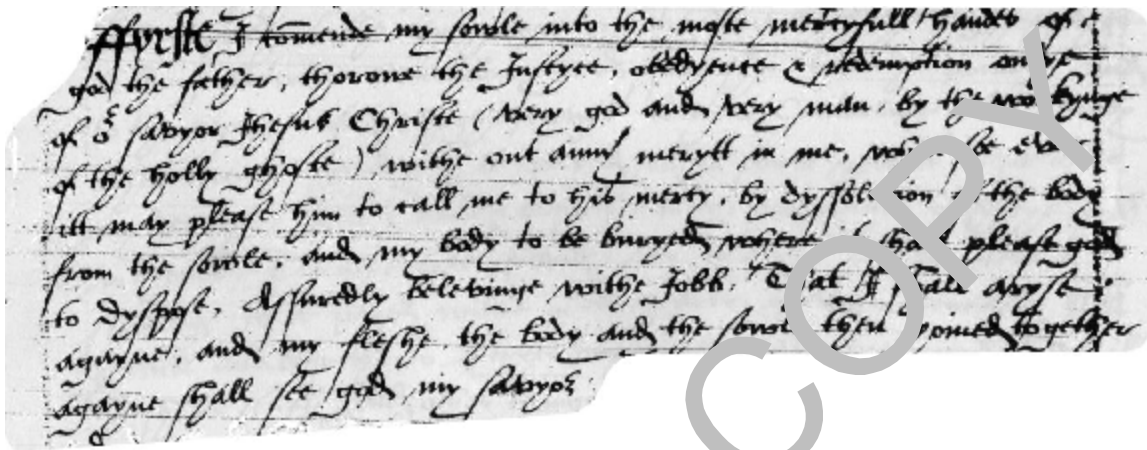 ffyrste I comende my sowle into the moste mercyfull handes of
god the father, thorowe the Justyce, obedyence & redemption onlye
of or savyor Jhesus Christe (very god and very man, by the workynge
of the holly ghoste) withe out anny merytt in me, whensoever
itt may please him to call me to his mercy, by dyssolucon of the body
from the sowle, and my body to be buryed where it shall please god
to dyspose, Assuredly belevinge withe Jobb, That I shall aryse
agayne, and my fleshe the body and the sowle then joined together
agayne shall see god my savyor
COPY